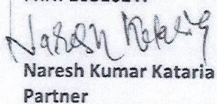 Naresh Kataria
Naresh Kumar Kataria
Partner